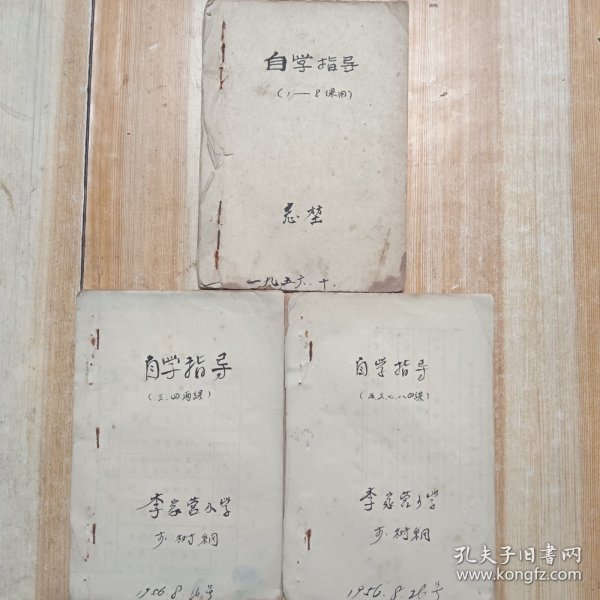 自学指导
(1—8课用)
一九五六.十.
自学指导
(三.四两課)
李家营小学
树綱
1956.8.16号
自学指导
(五.六.七.八四課)
李家营小学
树綱
1956.8.26号
孔夫子旧书网
www.kongfz.com